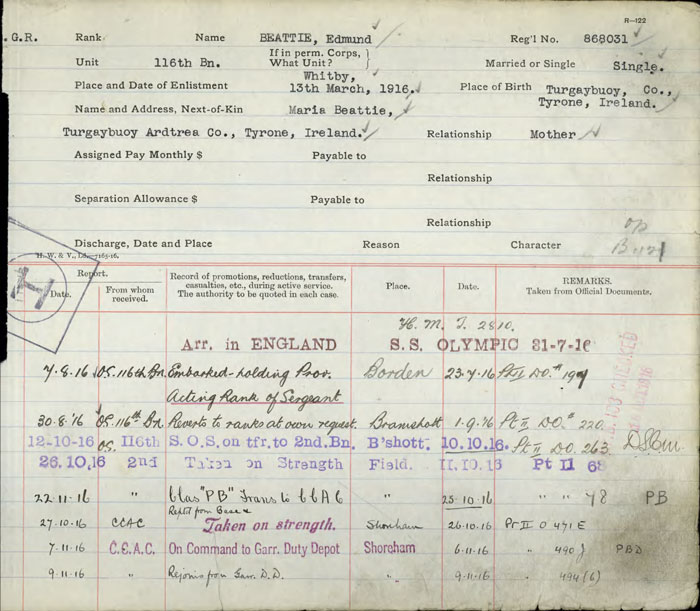 R-122
.G.R. Rank Name BEATTIE, Edmund Reg'l No. 868031
Unit 116th Bn. If in perm. Corps, What Unit? Married or Single Single.
Place and Date of Enlistment Whitby, 13th March, 1916. Place of Birth Turgaybuoy, Co., Tyrone, Ireland.
Name and Address, Next-of-Kin Maria Beattie,
Turgaybuoy Ardtrea Co., Tyrone, Ireland. Relationship Mother
Assigned Pay Monthly $ Payable to
Relationship
Separation Allowance $ Payable to
Relationship
Discharge, Date and Place Reason Character
H. W. & V., Ld.
H
Report. Record of promotions, reductions, transfers, casualties, etc., during active service. The authority to be quoted in each case. Place. Date. REMARKS. Taken from Official Documents.
Date. From whom received.
H. M. T. 2810.
Arr. in ENGLAND S. S. OLYMPIC 31-7-16
7.8.16 OS. 116th Bn. Embarked-holding Prov. Borden 23.7.16 Pt II DO.
Acting Rank of Sergeant
30.8.16 OS. 116th Bn Reverts to ranks at own request. Bramshott 1.9.16 Pt II DO. 220.
12-10-16 OS. 116th S.O.S. on tfr. to 2nd. Bn. B'shott. 10.10.16. Pt II DO. 263.
26.10.16 2nd Taken on Strength Field. 11.10.16 Pt II 68
22.11.16 " Class "PB" Trans to CCAC " 25.10.16 " " 78 PB
Reptd from Base &
27.10.16 CCAC Taken on strength. Shoreham 26.10.16 Pt II O 471 E
7.11.16 C.C.A.C. On Command to Garr. Duty Depot Shoreham 6.11.16 " 490 PBD
9.11.16 " Rejoins from Garr. D.D. " 9.11.16 " 494 (6)